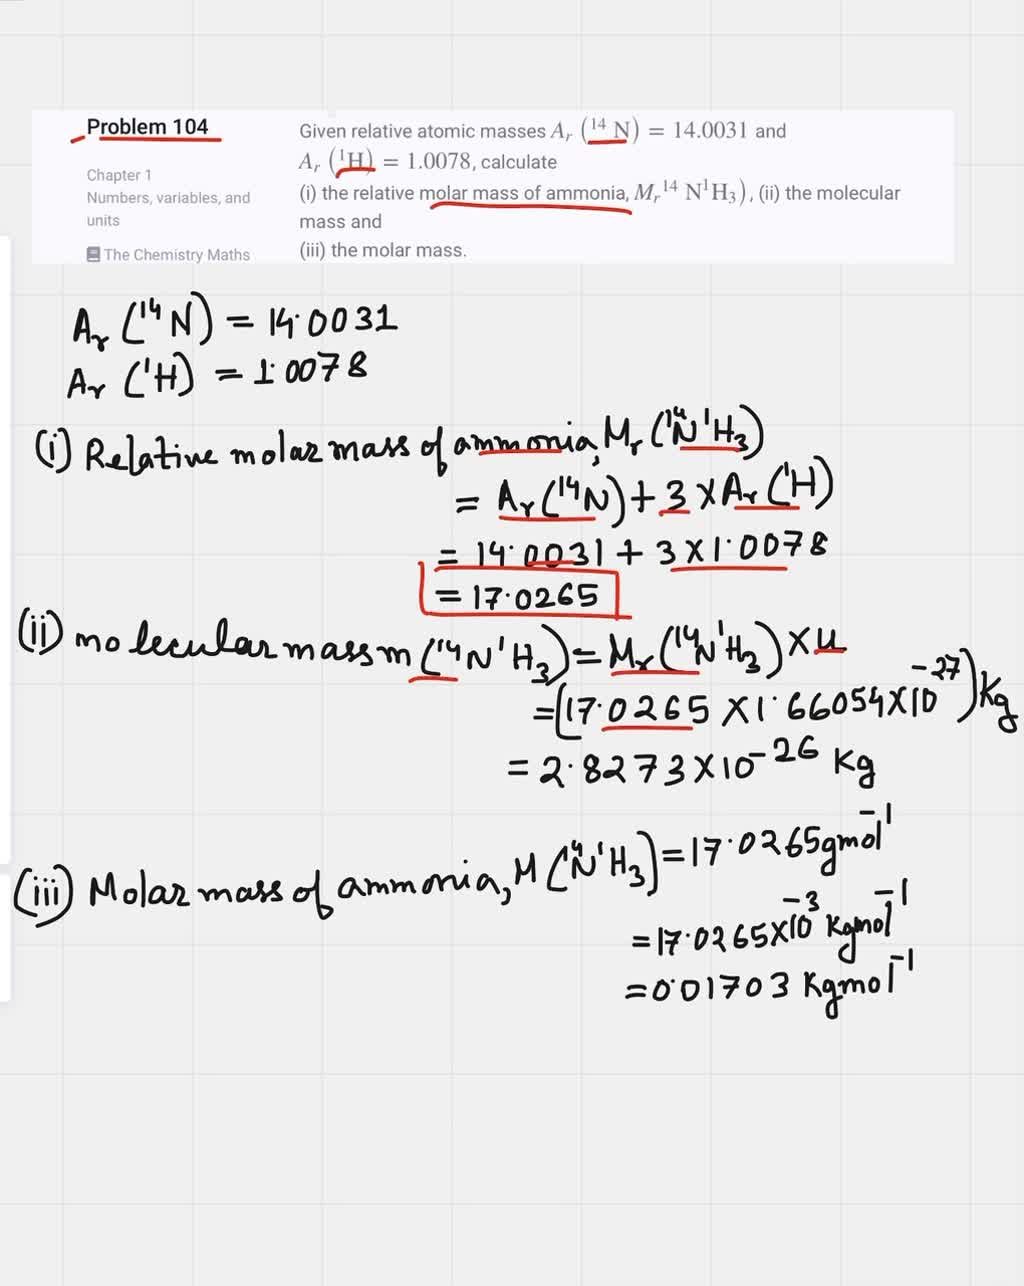 Problem 104
Chapter 1
Numbers, variables, and
units
The Chemistry Maths
Given relative atomic masses Aᵣ (¹⁴ N) = 14.0031 and
Aᵣ (¹H) = 1.0078, calculate
(i) the relative molar mass of ammonia, Mᵣ¹⁴ N¹H₃), (ii) the molecular
mass and
(iii) the molar mass.
Aᵣ (¹⁴N) = 14.0031
Aᵣ (¹H) = 1.0078
(i) Relative molar mass of ammonia, Mᵣ(¹⁴N¹H₃)
= Aᵣ(¹⁴N) + 3 × Aᵣ(¹H)
= 14.0031 + 3 × 1.0078
= 17.0265
(ii) molecular mass m (¹⁴N¹H₃) = Mᵣ(¹⁴N¹H₃) × u
= (17.0265 × 1.66054 × 10⁻²⁷) Kg
= 2.8273 × 10⁻²⁶ Kg
(iii) Molar mass of ammonia, M (¹⁴N¹H₃) = 17.0265 gmol⁻¹
= 17.0265 × 10⁻³ Kgmol⁻¹
= 0.01703 Kgmol⁻¹